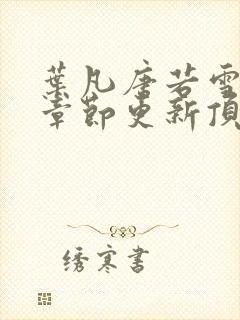 葉凡唐若雪
章節更新頂
绣寒書